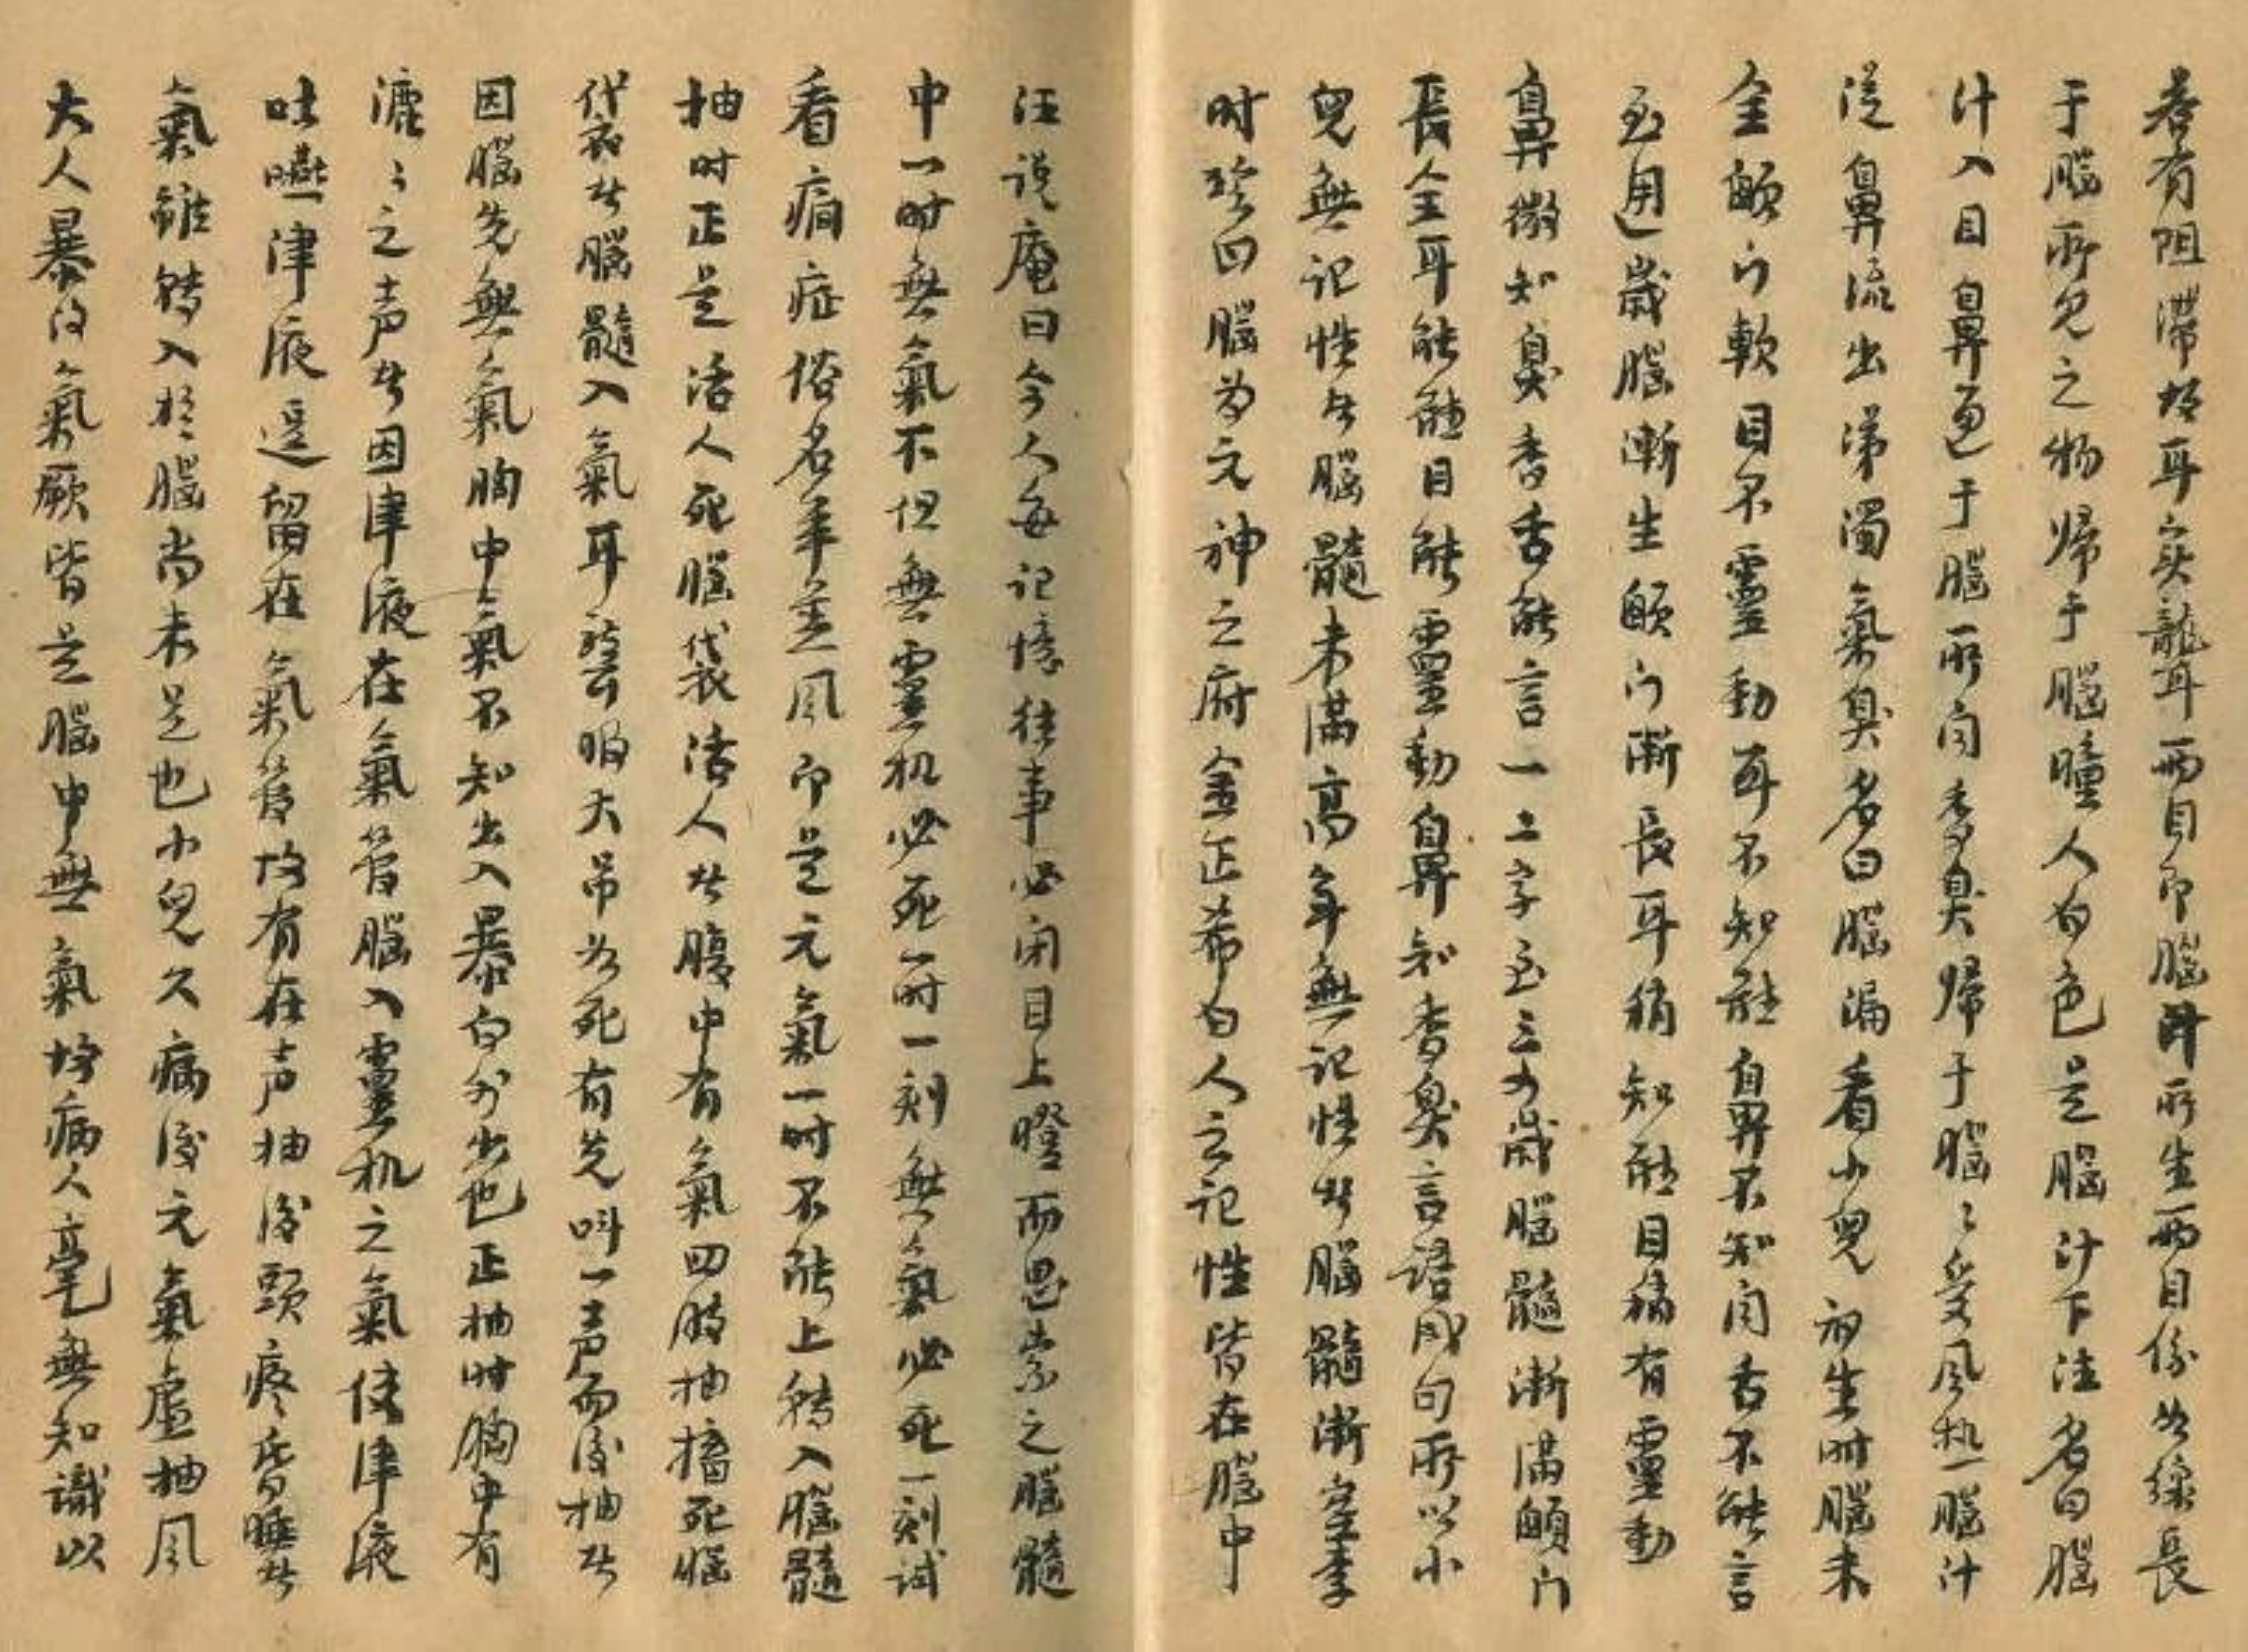 若有阻滞故耳实聋耳两目即脑汁所生两目係如線長
于腦所见之物帰于腦瞳人白色是腦汁下注名曰腦
汁入目鼻通于腦所闻香臭帰于腦〻受风热腦汁
従鼻流出涕濁氣臭名曰腦漏看小兒初生时腦未
全顖门軟目不靈動耳不知聴鼻不知闻舌不能言
至週歳腦漸生顖门漸長耳稍知聴目稍有靈動
鼻微知臭香舌能言一二字至三四歳腦髓漸滿顖门
長全耳能聴目能靈動鼻知香臭言語成句所以小
兒無记性者腦髓未滿高年無记性者腦髓漸空李
时珍曰腦为元神之府金正希曰人之记性皆在腦中
汪说庵曰今人每记憶往事必闭目上瞪而思索之腦髓
中一时無氣不但無靈机必死一时一刻無氣必死一刻试
看癎症俗名羊羔风即是元氣一时不能上转入腦髓
抽时正是活人死腦袋活人者腹中有氣四肢抽搐死腦
袋者腦髓入氣耳聾眼大吊如死有先叫一声而後抽者
因腦先無氣胸中氣不知出入暴向外出也正抽时胸中有
漉〻之声者因津液在氣管腦入靈机之氣使津液
吐嚥津液逗留在氣管故有在声抽後頭疼昏睡者
氣雖转入於腦尚未足也小兒久病後元氣虚抽风
大人暴得氣厥皆是腦中無氣故病人毫無知識以